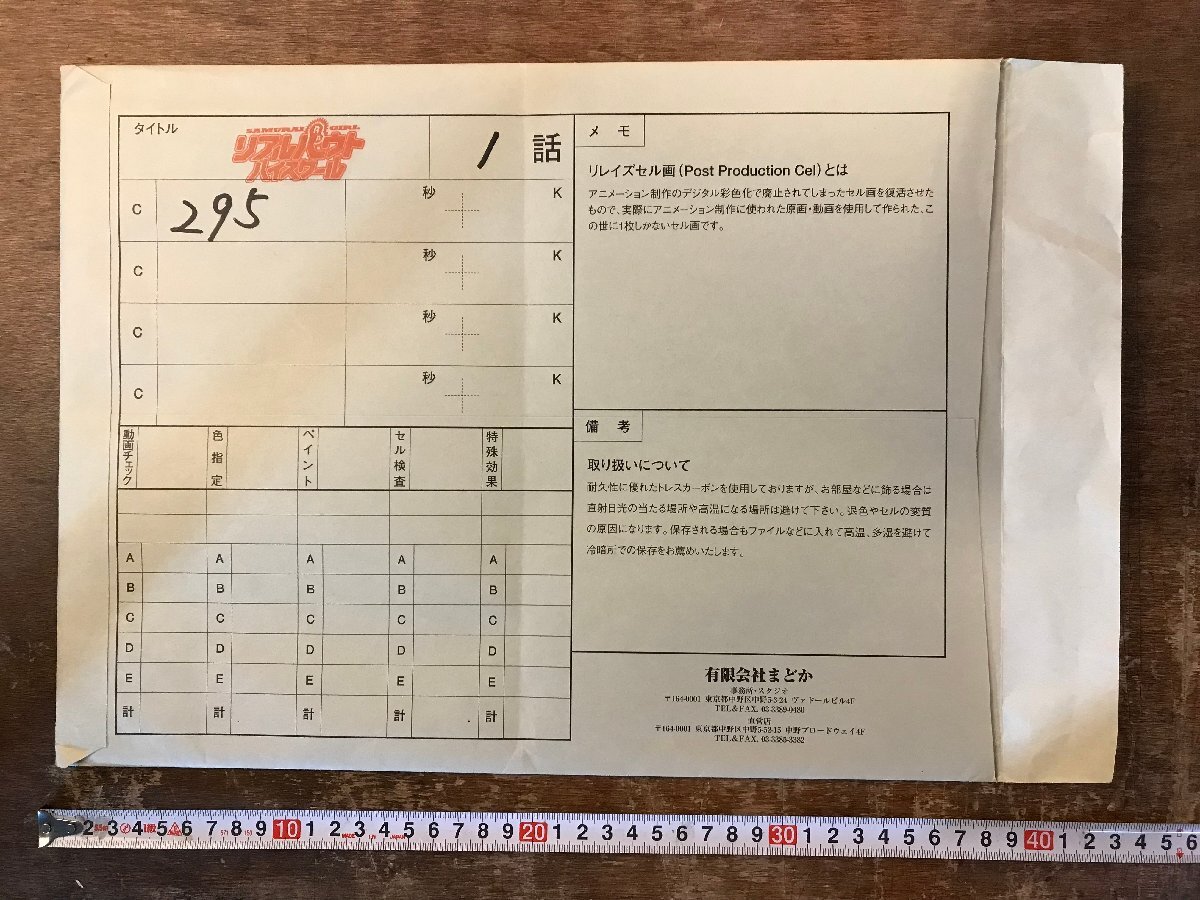 タイトル
SAMURAI GIRL
リアルバウト
ハイスクール
1 話
C 295 秒 K
C 秒 K
C 秒 K
C 秒 K
動画チェック 色指定 ペイント セル検査 特殊効果
A A A A A
B B B B B
C C C C C
D D D D D
E E E E E
計 計 計 計 計
メモ
リレイズセル画(Post Production Cel)とは
アニメーション制作のデジタル彩色化で廃止されてしまったセル画を復活させた
もので、実際にアニメーション制作に使われた原画・動画を使用して作られた、こ
の世に1枚しかないセル画です。
備考
取り扱いについて
耐久性に優れたトレスカーボンを使用しておりますが、お部屋などに飾る場合は
直射日光の当たる場所や高温になる場所は避けて下さい。退色やセルの変質
の原因になります。保存される場合もファイルなどに入れて高温、多湿を避けて
冷暗所での保存をお薦めいたします。
有限会社まどか
事務所・スタジオ
〒164-0001 東京都中野区中野5-3-24 ヴァドールビル4F
TEL&FAX. 03-3389-0480
直営店
〒164-0001 東京都中野区中野5-52-15 中野ブロードウェイ4F
TEL&FAX. 03-3385-3382
2 3 4 5 6 7 8 9 10 1 2 3 4 5 6 7 8 9 20 1 2 3 4 5 6 7 8 9 30 1 2 3 4 5 6 7 8 9 40 1 2 3 4 5 6
MADE IN JAPAN